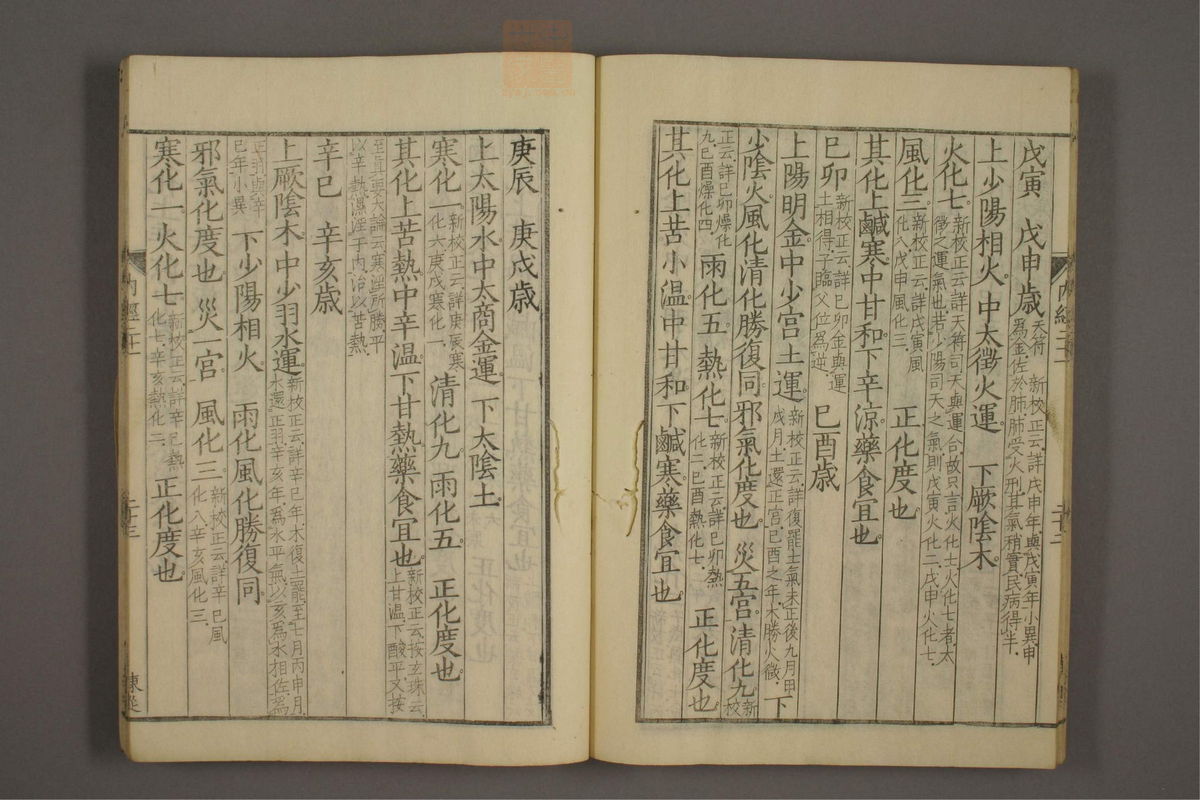 戊寅　戊申歲天符　新校正云詳戊申年與戊寅年小異申為金佐於肺肺受火刑其氣稍實民病得半
上少陽相火　中太徵火運　下厥陰木
火化七新校正云詳天符司天與運合故只言火化七火化七者太徵之運氣也若少陽司天之氣則戊寅火化二戊申火化七
風化三新校正云詳戊寅風化八戊申風化三　正化度也
其化上鹹寒中甘和下辛涼藥食宜也
己卯新校正云詳己卯金與運土相得子臨父位為逆　己酉歲
上陽明金中少宮土運新校正云詳復罷土氣未正後九月甲戌月土還正宮己酉之年木勝火微　下
少陰火風化清化勝復同邪氣化度也　災五宮清化九新校
正云詳己卯燥化九己酉燥化四　雨化五　熱化七新校正云詳己卯熱化二己酉熱化七　正化度也
其化上苦小溫中甘和下鹹寒藥食宜也
內經二十一
庚辰　庚戌歲
上太陽水中太商金運　下太陰土
寒化一新校正云詳庚辰寒化六庚戌寒化一　清化九　雨化五　正化度也
其化上苦熱中辛溫下甘熱藥食宜也新校正云按玄珠云上甘溫下酸平又按
至真要大論云寒淫所勝平以辛熱濕淫于內治以苦熱
辛巳　辛亥歲
上厥陰木中少羽水運新校正云詳辛巳年木復土罷至七月丙申月水還正羽辛亥年為水平氣以亥為水相佐為
正羽與辛巳年小異　下少陽相火　雨化風化勝復同
邪氣化度也　災一宮　風化三新校正云詳辛巳風化八辛亥風化三
寒化一火化七新校正云詳辛巳熱化七辛亥熱化二　正化度也
內經二十一